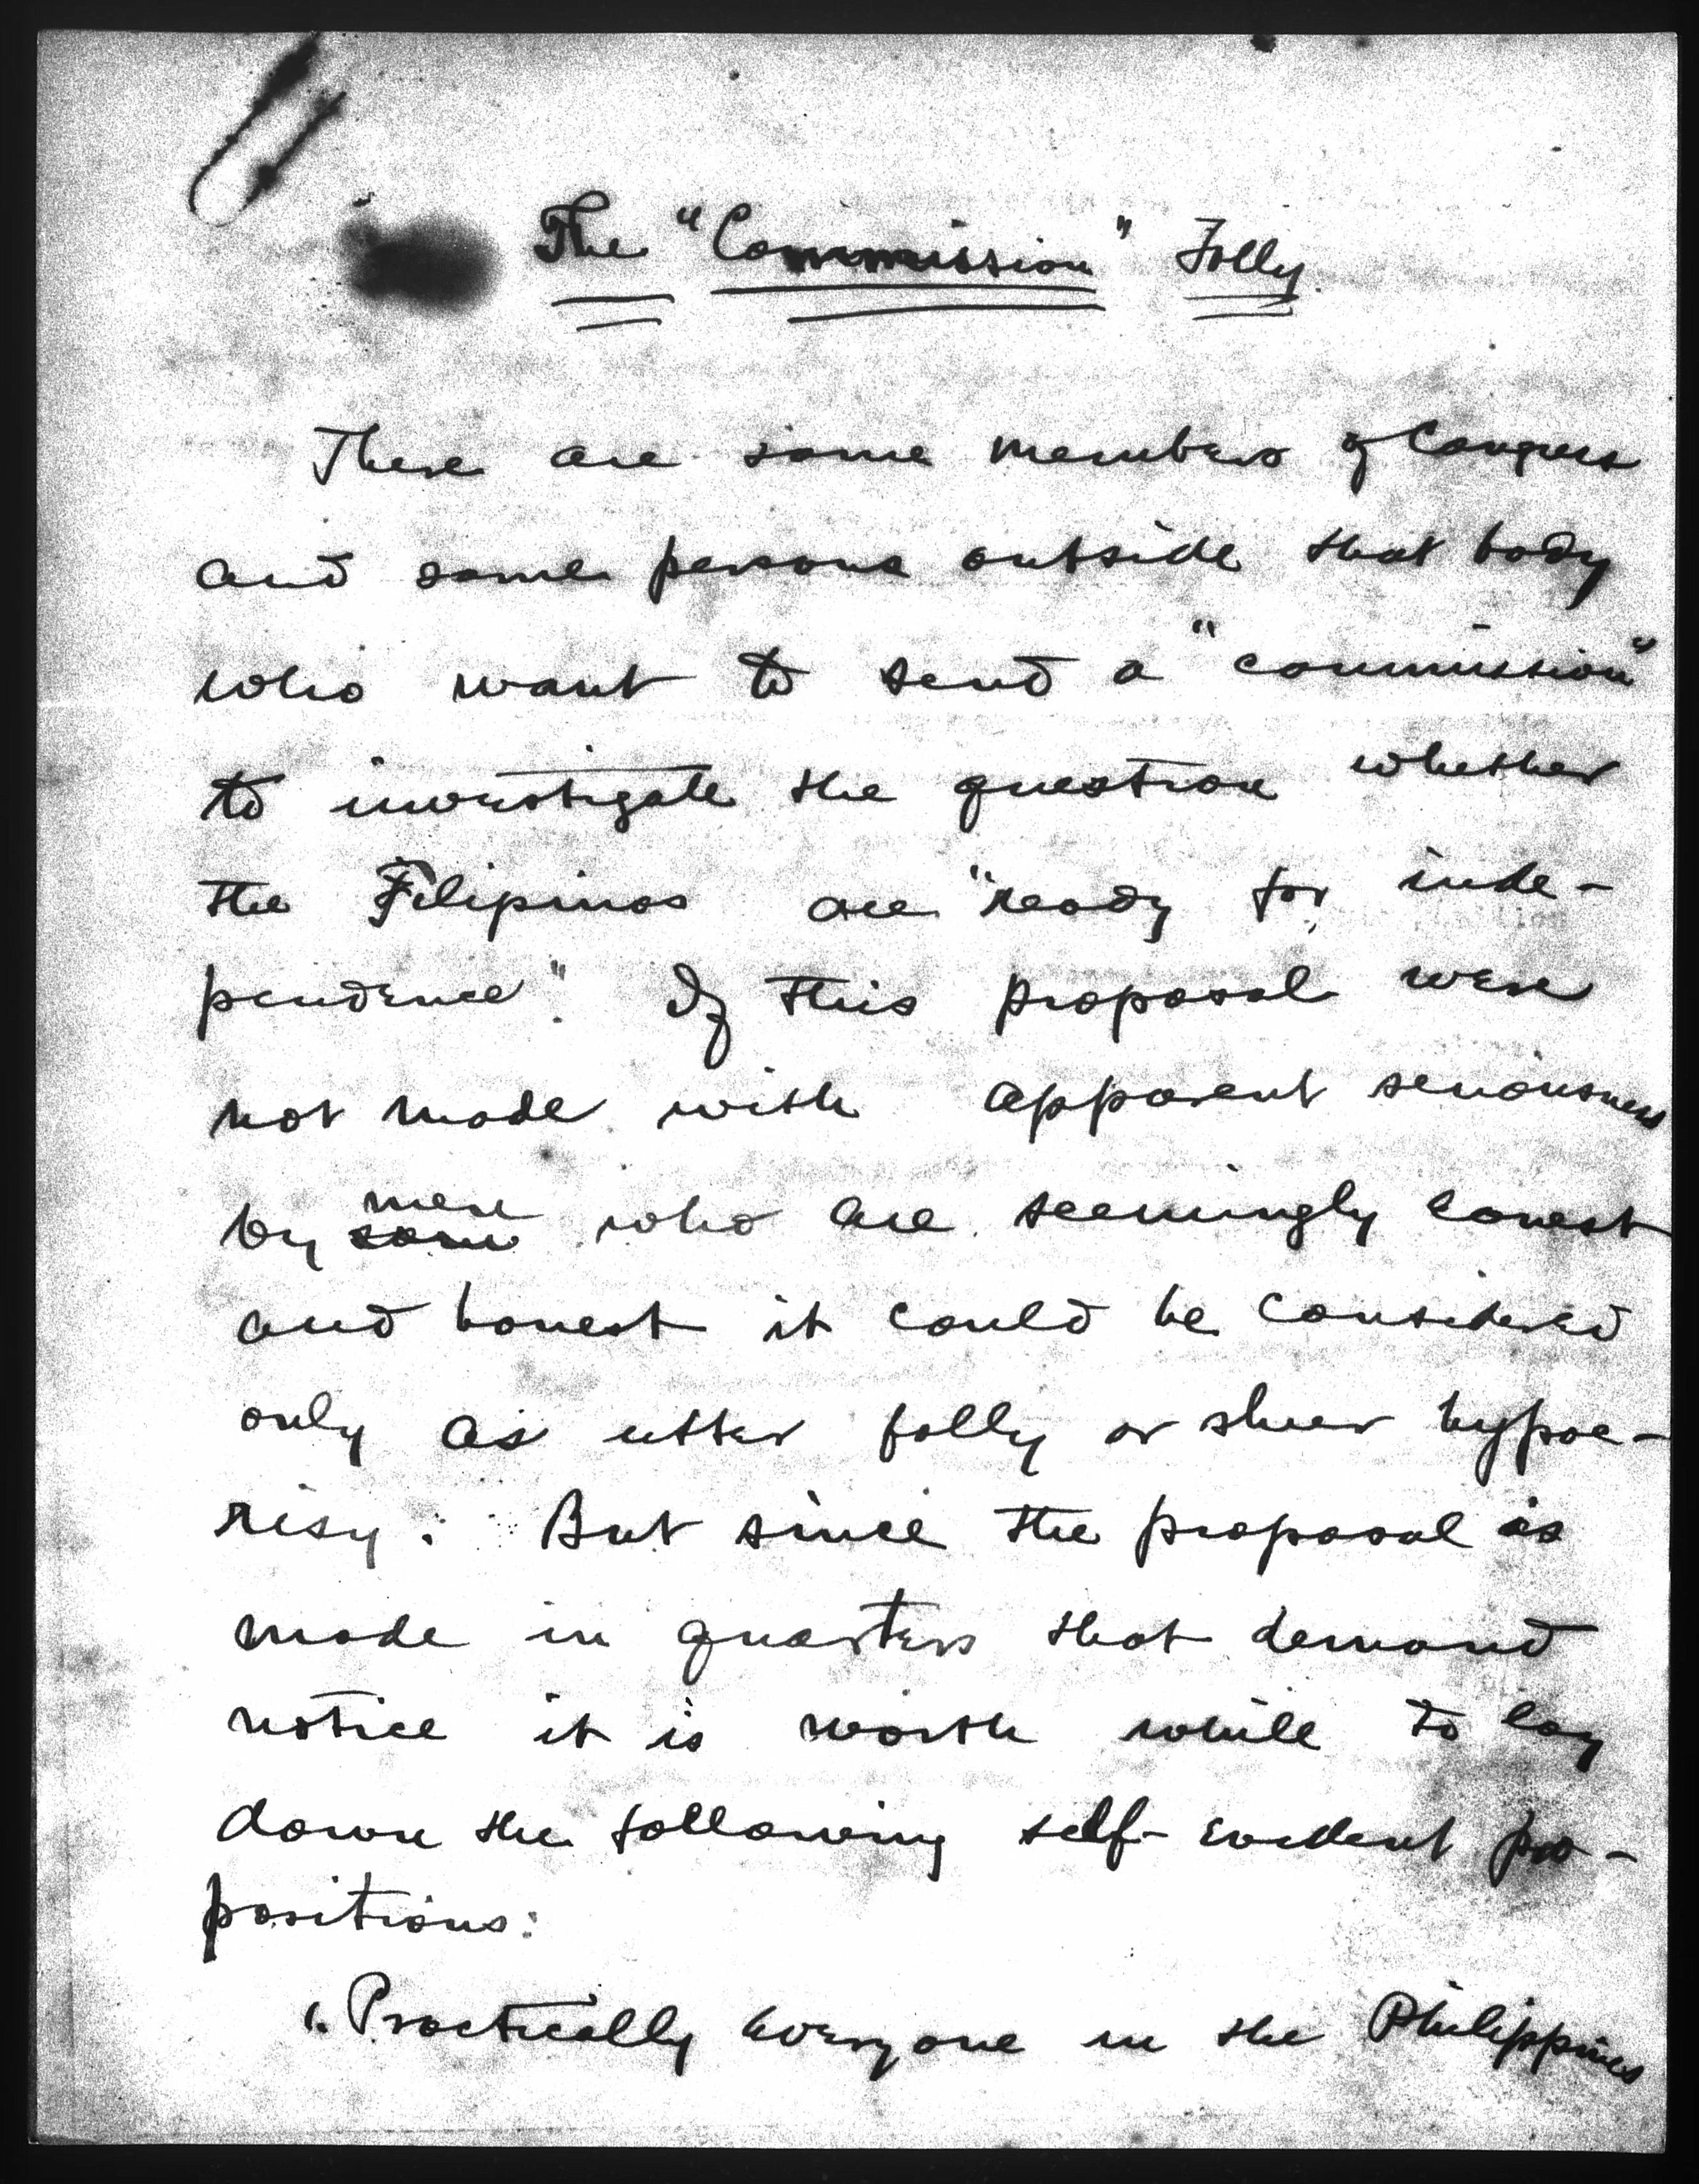 The "Commission" Folly.
There are some members of Congress
and some persons outside that body
who want to send a "commission"
to investigate the question whether
the Filipinos are "ready for inde-
pendence". If this proposal were
not made with apparent seriousness
men
by some who are seemingly earnest
and honest it could be considered
only as utter folly or sheer hypoc-
risy. But since the proposal is
made in quarters that demand
notice it is worth while to lay
down the following self-evident pro-
positions:
1. Practically everyone in the Philippines